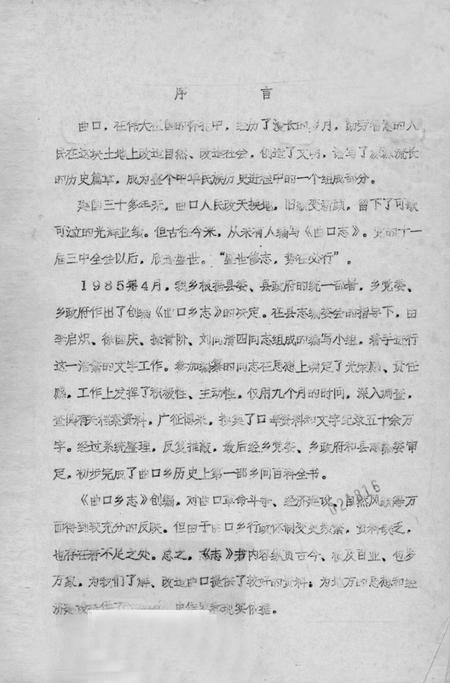 序 言
曲口，在伟大祖国的怀抱中，经历了漫长的岁月，勤劳智慧的人
民在这块土地上改造自然、改造社会，创造了文明，谱写了源源流长
的历史篇章，成为整个中华民族历史进程中的一个组成部分。
建国三十多年来，曲口人民改天换地，旧貌变新颜，留下了可歌
可泣的光辉业绩。但古往今来，从未有人编写《曲口志》。党的十一
届三中全会以后，欣逢盛世。“盛世修志，势在必行”。
1985年4月，我乡根据县委、县政府的统一部署，乡党委、
乡政府作出了创编《曲口乡志》的决定。在县志编委会的指导下，由
李启炽、徐国庆、振青阶、刘向清四同志组成的编写小组，着手进行
这一浩繁的文字工作。参加编纂的同志在思想上确定了光荣感、责任
感，工作上发挥了积极性、主动性，仅用九个月的时间，深入调查，
查阅有关档案资料，广征博采，搜集了口碑资料和文字纪录五十余万
字。经过系统整理，反复推敲，最后经乡党委、乡政府和县志编委审
定，初步完成了曲口乡历史上第一部乡间百科全书。
《曲口乡志》创编，对曲口革命斗争、经济建设、自然风貌等方
面得到较充分的反映。但由于曲口乡行政体制变更频繁，资料缺乏，
也存在着不足之处。总之，《志》书内容纵贯古今、横及百业、包罗
万象，为我们了解、改造曲口提供了较好的资料；为地方的思想和经
济建设
024816